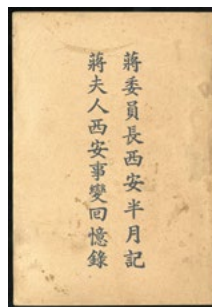 蔣委員長西安半月記
蔣夫人西安事變回憶錄